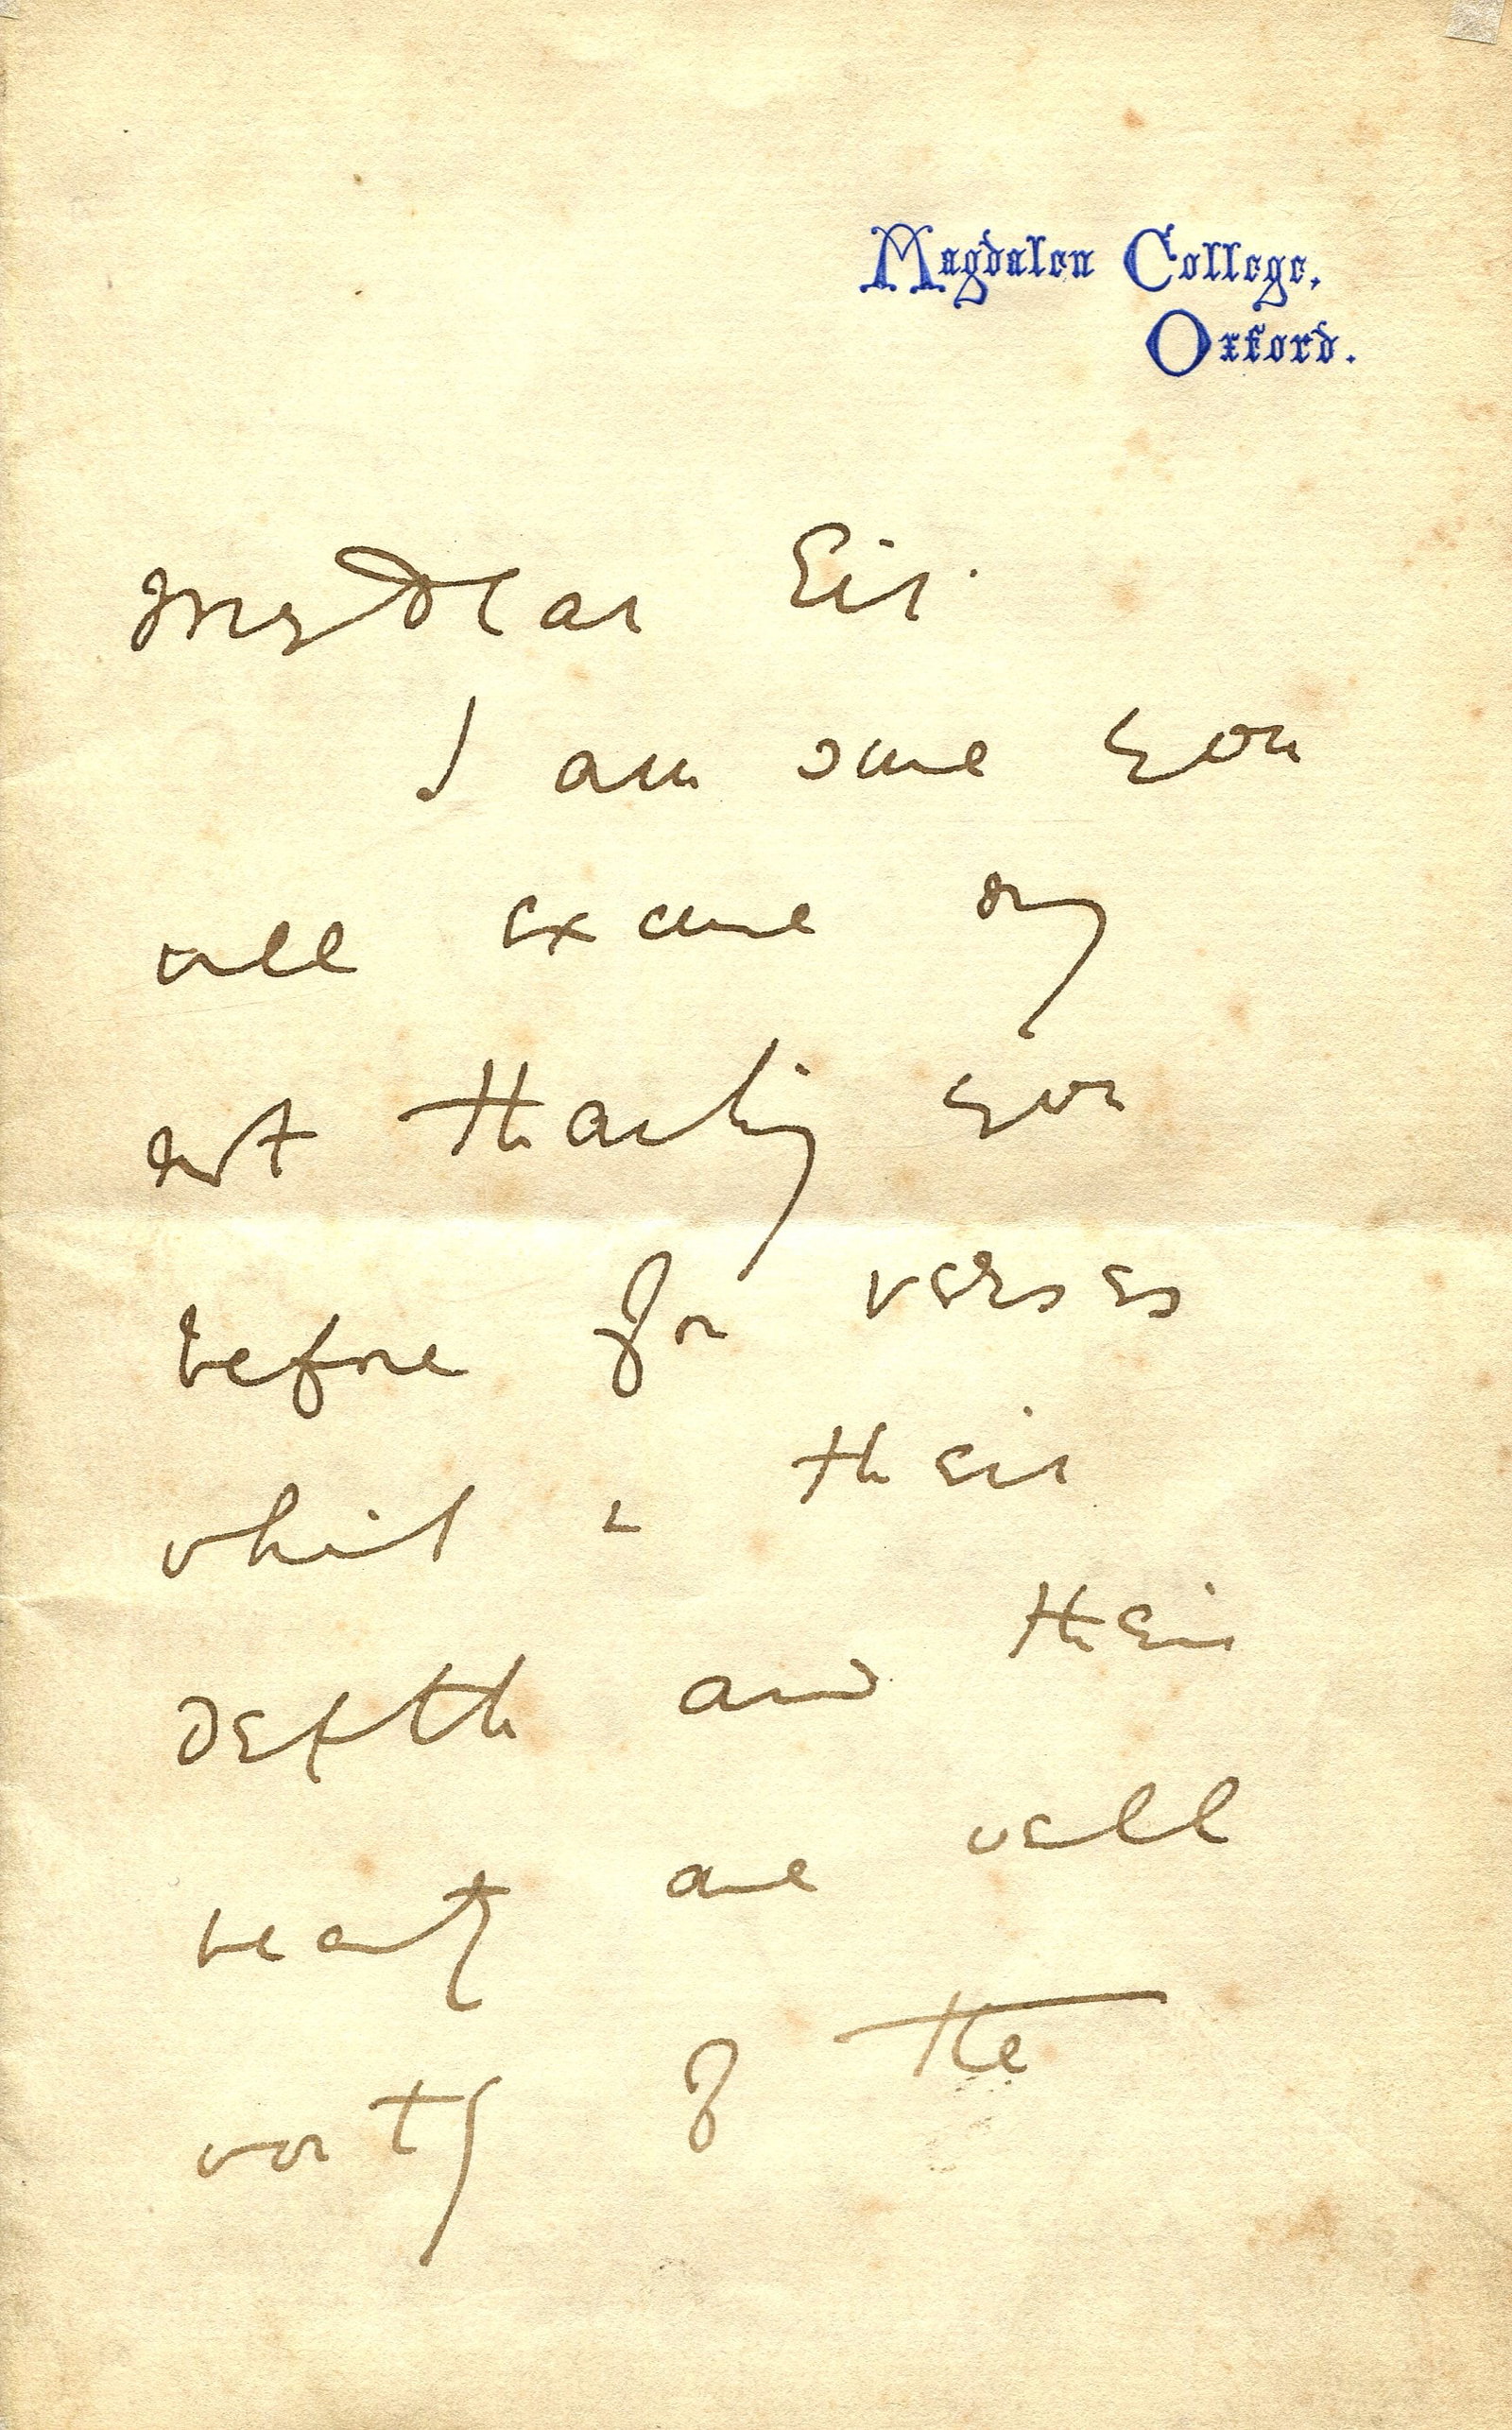 Magdalen College,
Oxford.
My dear Sir.
I am sure you
will excuse my
not thanking you
before for verses
which in their
depth and their
beauty are well
worthy of the